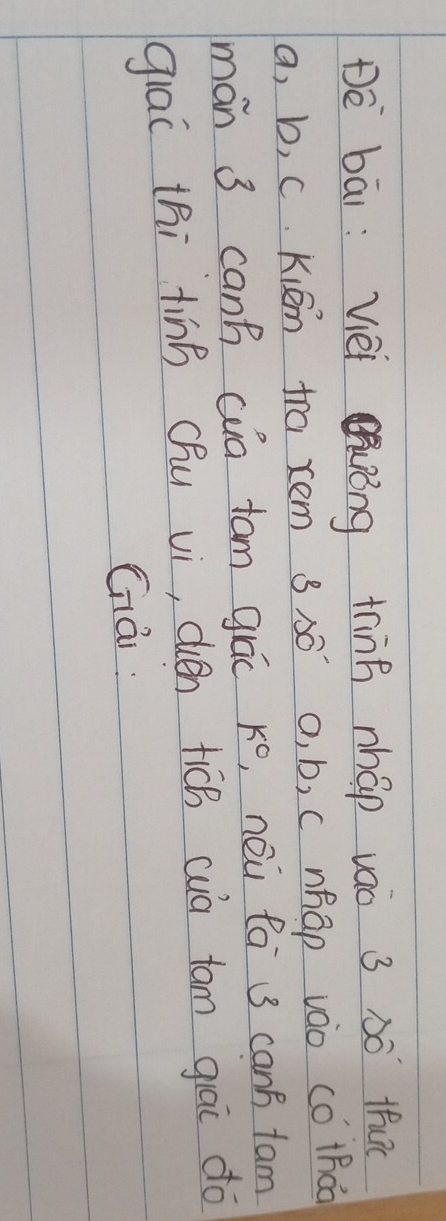 Đề bài: Viết chương trình nhập vào 3 số thực
a, b, c. Kiểm tra xem 3 số a, b, c nhập vào có thỏa
mãn 3 cạnh của tam giác k°, nếu là 3 cạnh tam
giác thì tính chu vi, diện tích của tam giác đó
Giải: